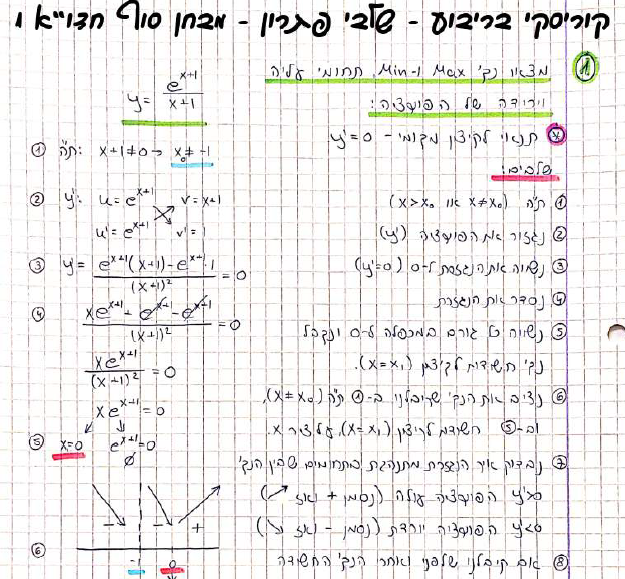 קוריסקי בריבוע - שלבי פתרון - מבחן סוף חדו"א 1
① מצאו נק' Max ו-Min, תחומי עליה
וירידה של הפונקציה:
* תנאי לקיצון מקומי - y'=0
שלבים:
① ת"ה (x≠x₀ או x>x₀)
② נגזור את הפונקציה (y')
③ נשווה את הנגזרת ל-0 (y'=0)
④ נסדר את הנגזרת
⑤ נשווה כל גורם במכפלה ל-0 ונקבל
נק' חשודות לקיצון (x=x₁).
⑥ נציב את הנק' שקיבלנו ב-① ת"ה (x≠x₀),
וב-⑤ חשודות לקיצון (x=x₁), על ציר x.
⑦ נבדוק איך הנגזרת מתנהגת בתחומים שבין הנק'
y'>0 הפונקציה עולה (נסמן + ואז ↗)
y'<0 הפונקציה יורדת (נסמן - ואז ↘)
⑧ אם קיבלנו שלפני ואחרי הנק' החשודה
y = e^(x+1) / (x+1)
① ת"ה: x+1≠0 → x≠-1
② y': u=e^(x+1) v=x+1
u'=e^(x+1) v'=1
③ y' = (e^(x+1)(x+1) - e^(x+1)·1) / (x+1)² = 0
④ (xe^(x+1) + e^(x+1) - e^(x+1)) / (x+1)² = 0
xe^(x+1) / (x+1)² = 0
xe^(x+1) = 0
⑤ x=0 e^(x+1)=0
∅
- - +
⑥ -1 0